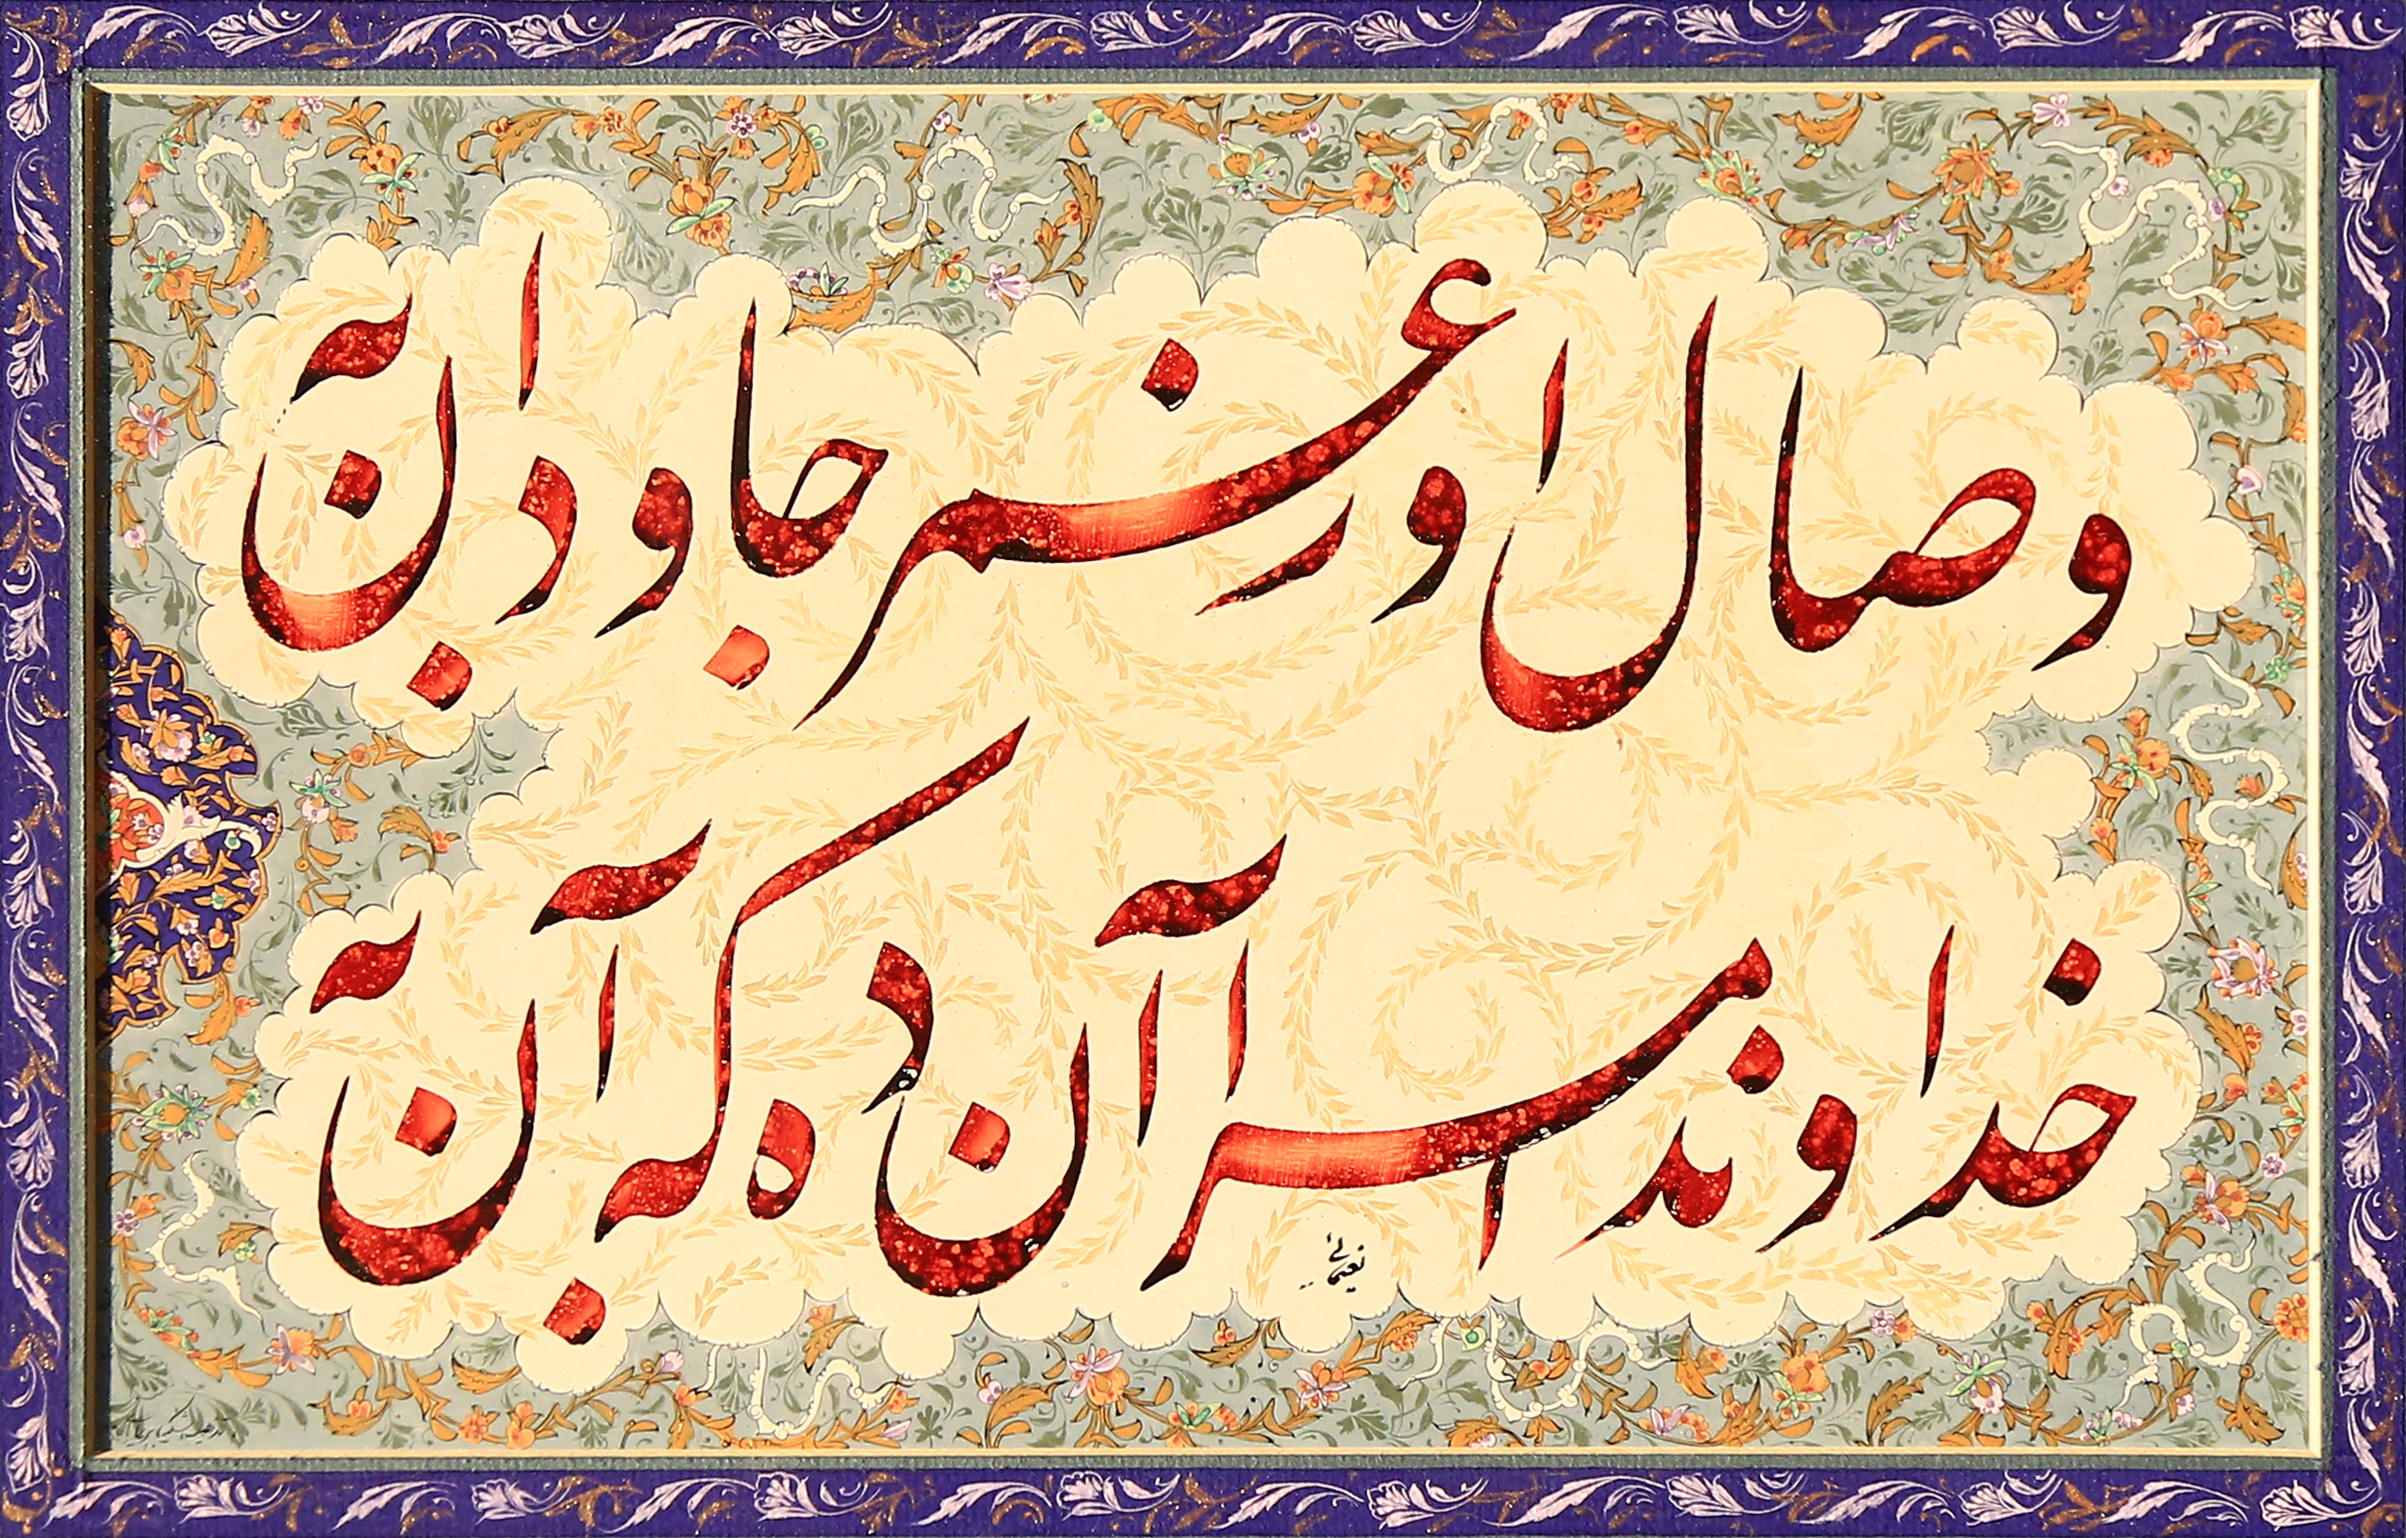 وصال او ز عمر جاودان به
خداوندا مرا آن ده که آن به